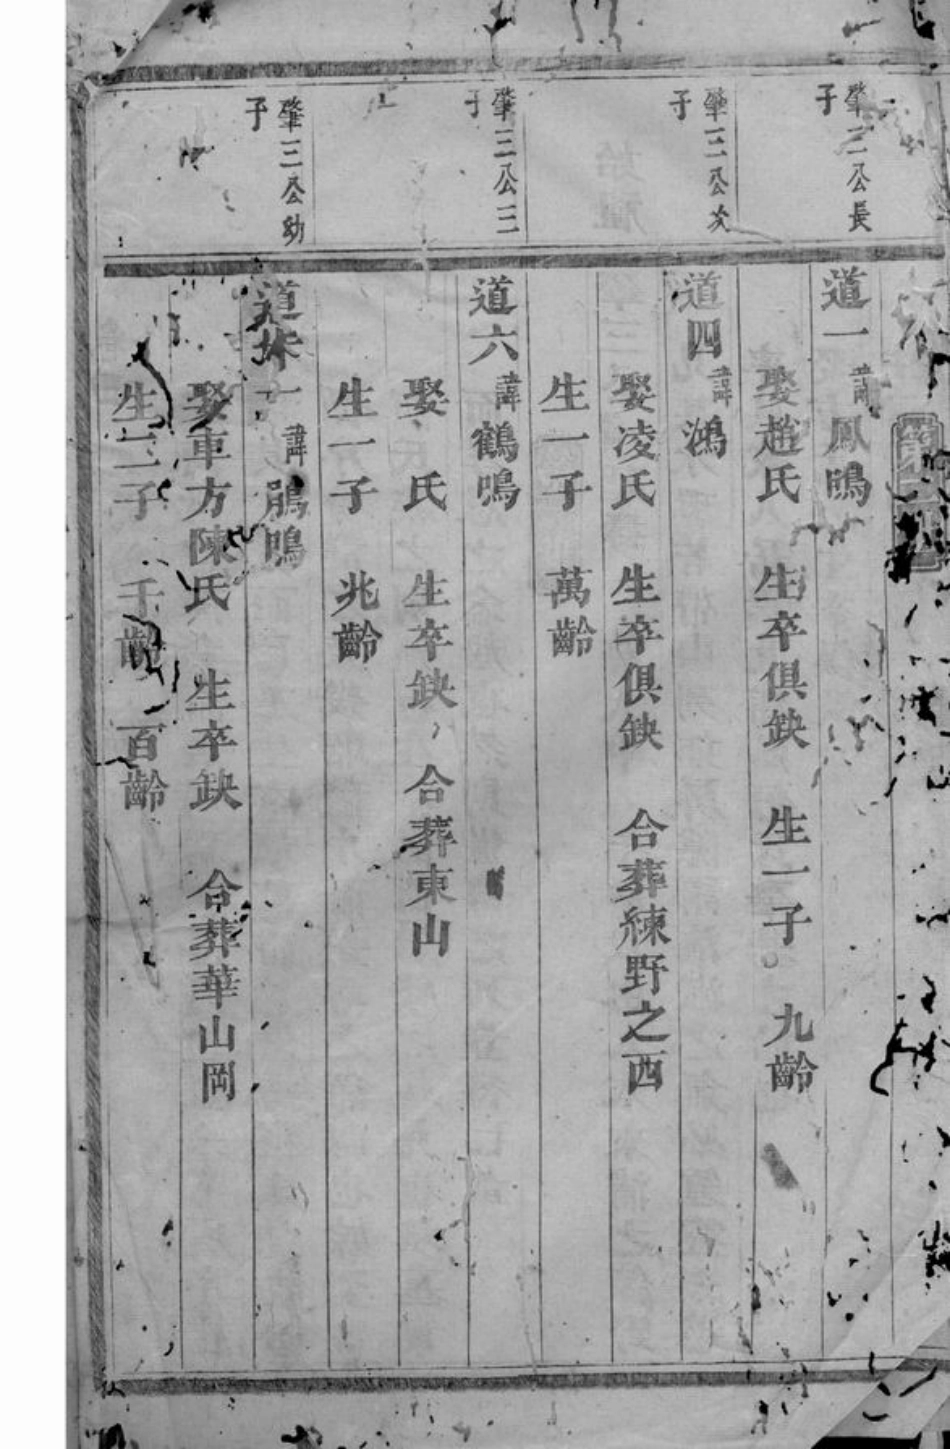 肇三公長
子
道一 諱鳳鳴
娶趙氏 生卒俱缺 生一子。九齡
肇三公次
子
道四 諱鴻
娶凌氏 生卒俱缺 合葬練野之西
生一子 萬齡
肇三公三
子
道六 諱鶴鳴
娶 氏 生卒缺 合葬東山
生一子 兆齡
肇三公幼
子
道 一 諱鵑鳴
娶車方陳氏 生卒缺 合葬華山岡
生二子 千齡 百齡